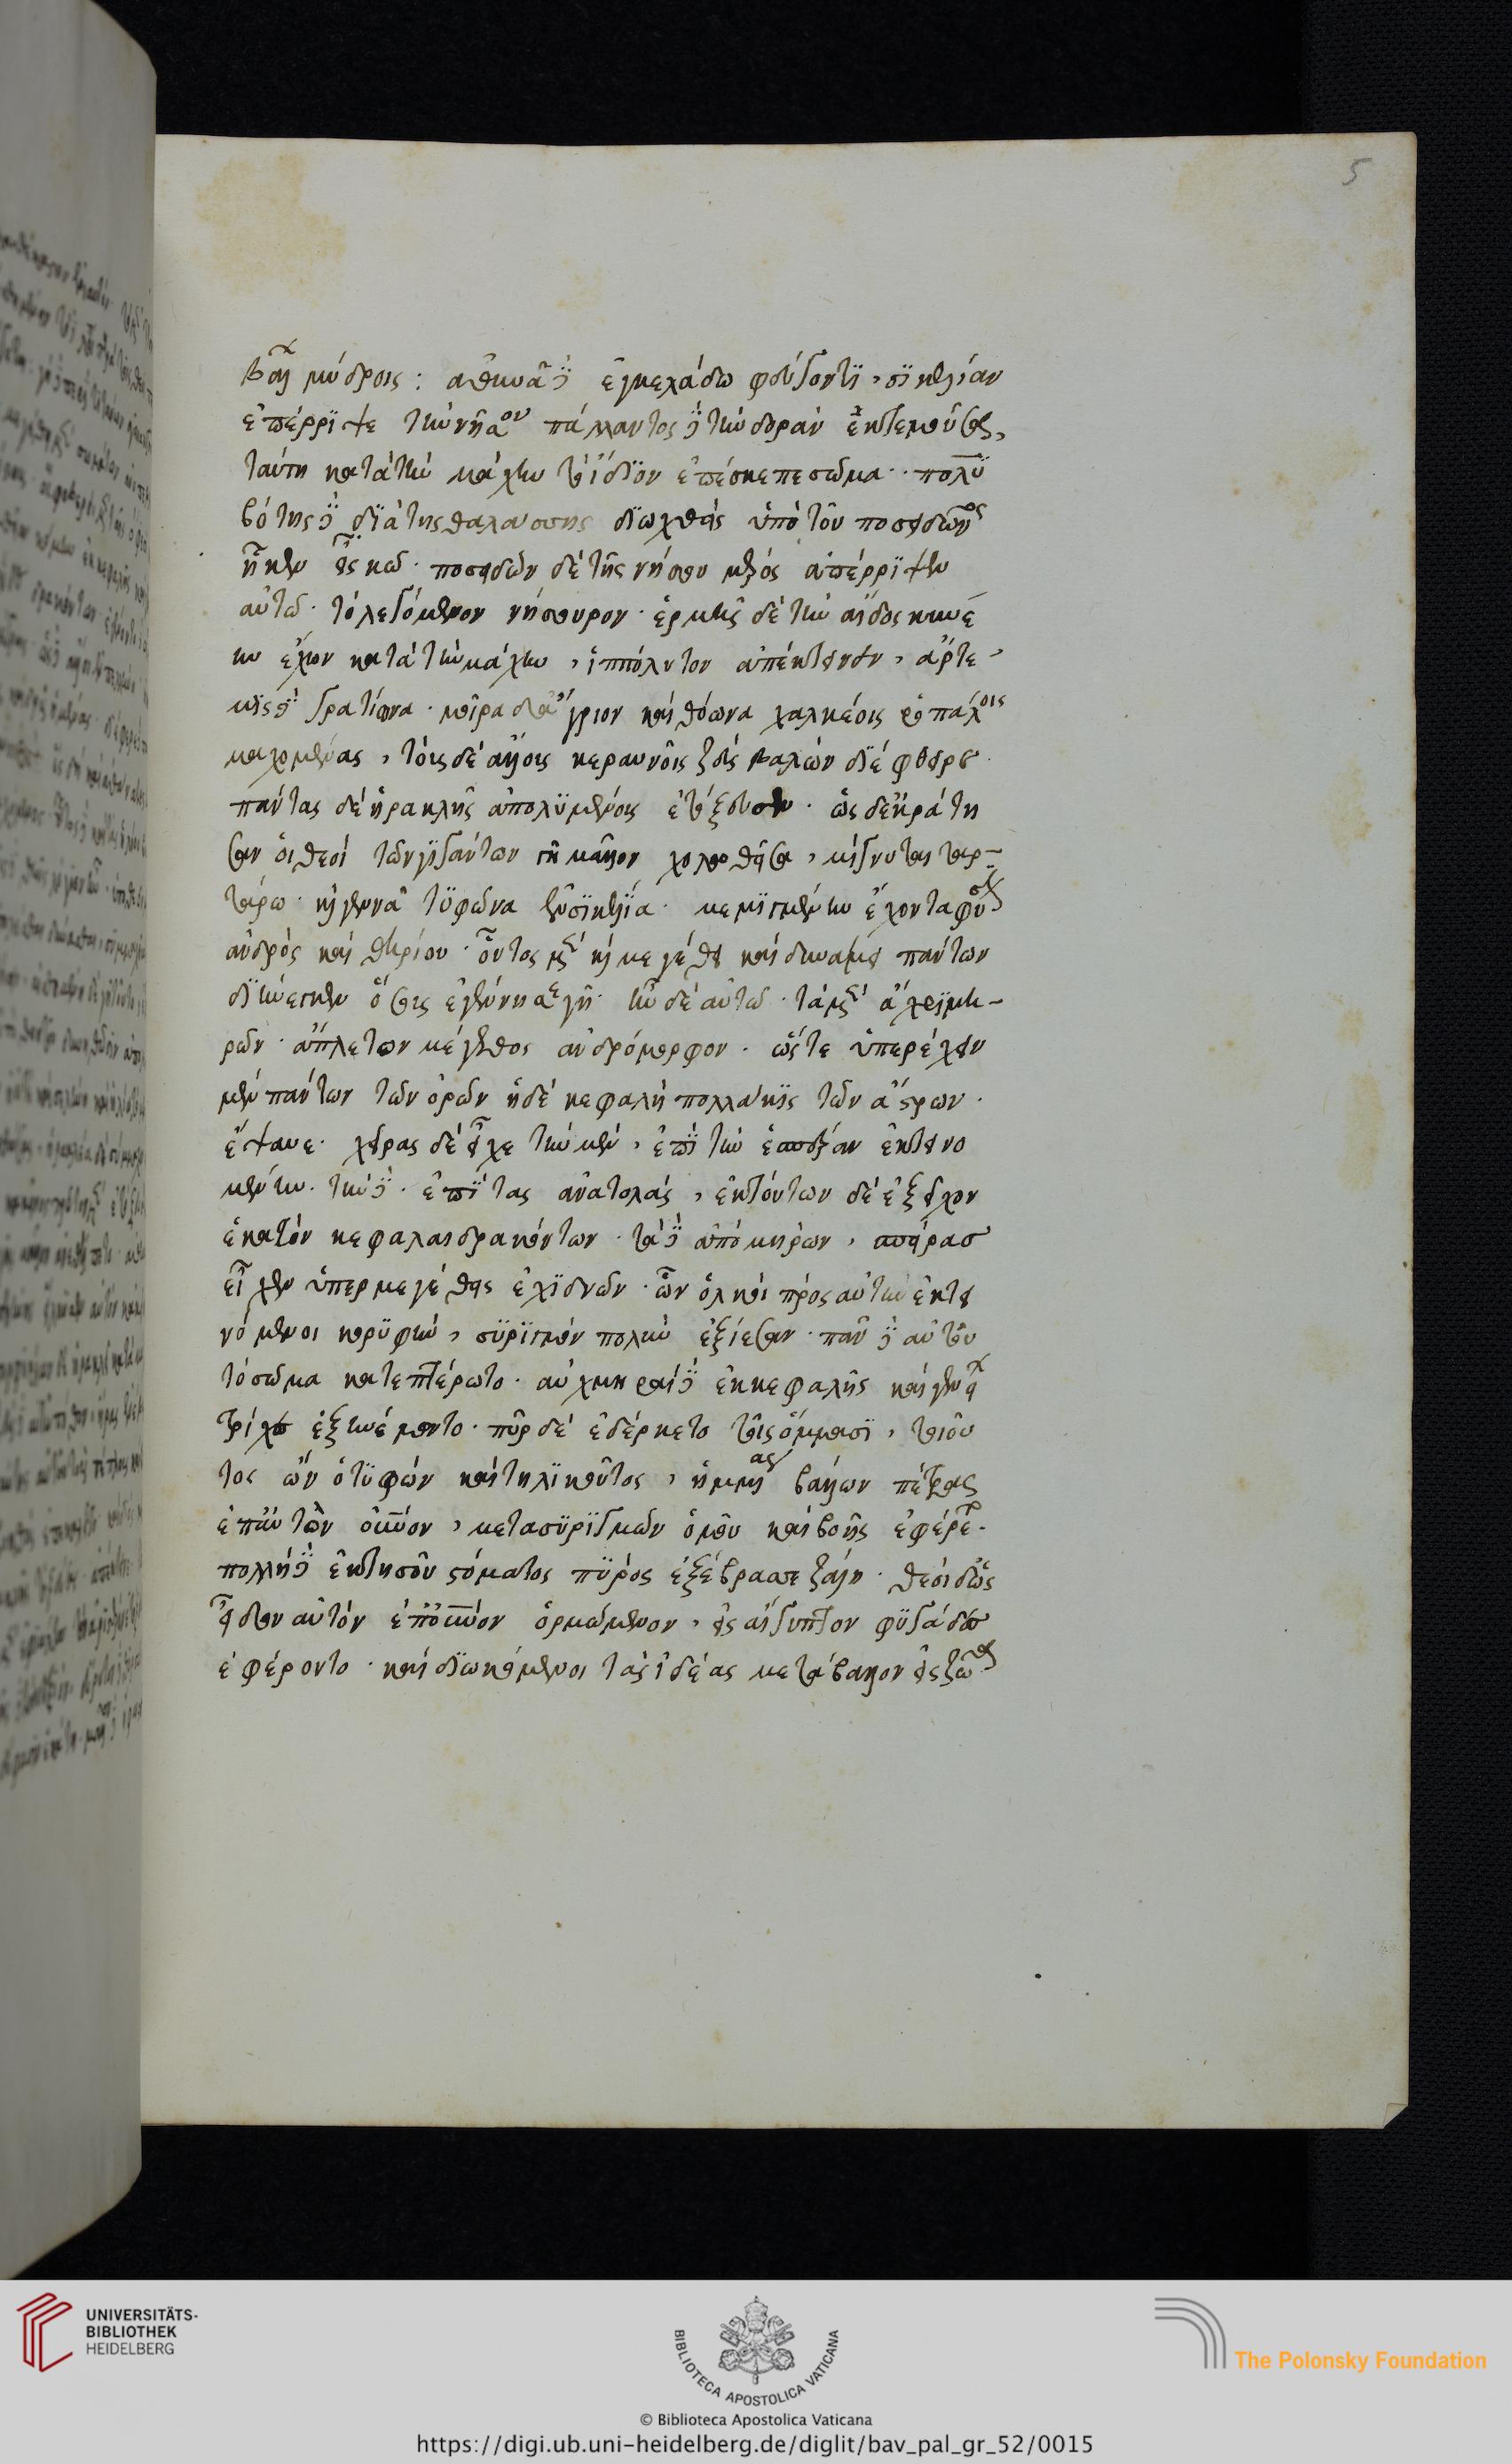 βαλ μύδροις : ἀθηνᾶ δὲ ἐγκελάδω φεύγοντϊ, σϊκελίαν
ἐπέρριψε τὴν νῆσον πάλλαντος δὲ τὴν δορὰν ἐκτεμοῦσα,
ταύτη κατὰ τὴν μάχην τὸ ἴδϊον ἐπέσκεπε σῶμα· πολϋ
βότης δὲ δϊὰ τῆς θαλάσσης δϊωχθεὶς ὑπὸ τοῦ ποσειδῶνος
ἧκεν εἰς κῶ· ποσειδῶν δὲ τῆς νήσου μέρος ἀπέρρϊψεν
αὐτῶ· τὸ λεγόμενον νήσουρον· ἑρμῆς δὲ τὴν ἄϊδος κυνέ
ην ἔχων κατὰ τὴν μάχην, ἱππόλυτον ἀπέκτεινεν, ἄρτε-
μϊς δὲ γρατίωνα· μοῖρα δὲ ἄγριον καὶ θόωνα χαλκέοις ῥοπάλοις
μαχομένας, τοὺς δὲ ἄλλους κεραυνοῖς ζεὺς βαλὼν δϊέφθειρε·
πάντας δὲ ἡρακλῆς ἀπολϋμένους ἐτόξευσεν· ὡς δ' ἐκράτη
σαν οἱ θεοὶ τῶν γϊγάντων γῆ μᾶλλον χολωθεῖσα, μίγνυται ταρ-
τάρω· καὶ γεννᾶ τϋφῶνα ἐν σϊκελϊα· μεμϊγμένην ἔχοντα φύσιν
ἀνδρὸς καὶ θηρίου· οὗτος μὲν καὶ μεγέθει καὶ δυνάμει πάντων
δϊήνεγκεν ὅσους ἐγέννησε γῆ· ἦν δὲ αὐτῶ· τὰ μὲν ἄχρϊ μη-
ρῶν· ἄπλετον μέγεθος ἀνδρόμορφον· ὥστε ὑπερέχειν
μὲν πάντων τῶν ὀρῶν ἡ δὲ κεφαλὴ πολλάκϊς τῶν ἄστρων·
ἔψαυε· χεῖρας δὲ εἶχε τὴν μὲν, ἐπϊ τὴν ἑσπέραν ἐκτεινο
μένην· τὴν δὲ· ἐπϊ τὰς ἀνατολάς, ἐκ τούτων δὲ ἐξεῖχον
ἑκατὸν κεφαλαὶ δρακόντων· τὰ δὲ ἀπὸ μηρῶν, σπείρας
εἶχεν ὑπερμεγέθεις ἐχϊδνῶν· ὧν ὁλκοὶ πρὸς αὐτὴν ἐκτει
νόμενοι κορϋφὴν, σϋρϊγμὸν πολὺν ἐξίεσαν· πᾶν δὲ αὐτοῦ
τὸ σῶμα κατεπτέρωτο· αὐχμηραὶ δὲ ἐκ κεφαλῆς καὶ γενύων
τρίχες ἐξηνέμωντο· πῦρ δὲ ἐδέρκετο τοῖς ὄμμασϊ, τοιοῦ
τος ὢν ὁ τϋφὼν καὶ τηλϊκοῦτος, ἡμμένας βάλλων πέτρας
ἐπ' αὐτὸν οὐνὸν, μετὰ σϋρϊγμῶν ὁμοῦ καὶ βοῆς ἐφέρετο·
πολλὴν δὲ ἐκ τῆς οῦ στόματος πϋρὸς ἐξέβρασσε ζάλην· θεοὶ δ' ὡς
εἶδον αὐτὸν ἐπ' οὐνὸν ὁρμώμενον, εἰς αἴγυπτον φϋγάδες
ἐφέροντο· καὶ δϊωκόμενοι τὰς ἰδέας μετάβαλλον εἰς ζῶα
5
UNIVERSITÄTS-
BIBLIOTHEK
HEIDELBERG
BIBLIOTECA APOSTOLICA VATICANA
The Polonsky Foundation
© Biblioteca Apostolica Vaticana
https://digi.ub.uni-heidelberg.de/diglit/bav_pal_gr_52/0015